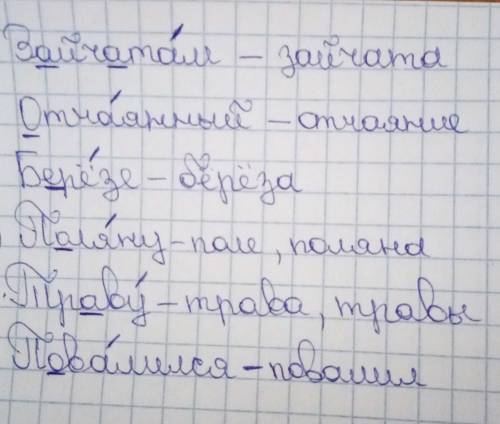 Зайчата́м – зайчата
Отча́янный – отчаяние
Берёзе – берёза
Поля́ну – поле, поляна
Траву́ – трава, травы
Пова́лился – повалил